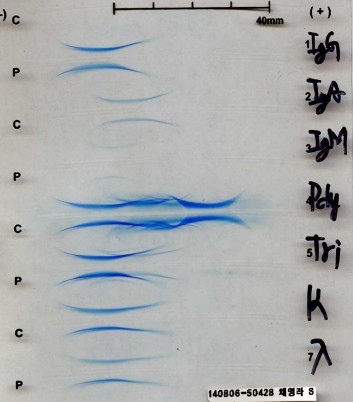 -) C (+)
40mm
1 IgG
P
2 IgA
C
3 IgM
P
4 Poly
C
5 Tri
P
K
C
7 λ
P
140806-50428 채영라 S